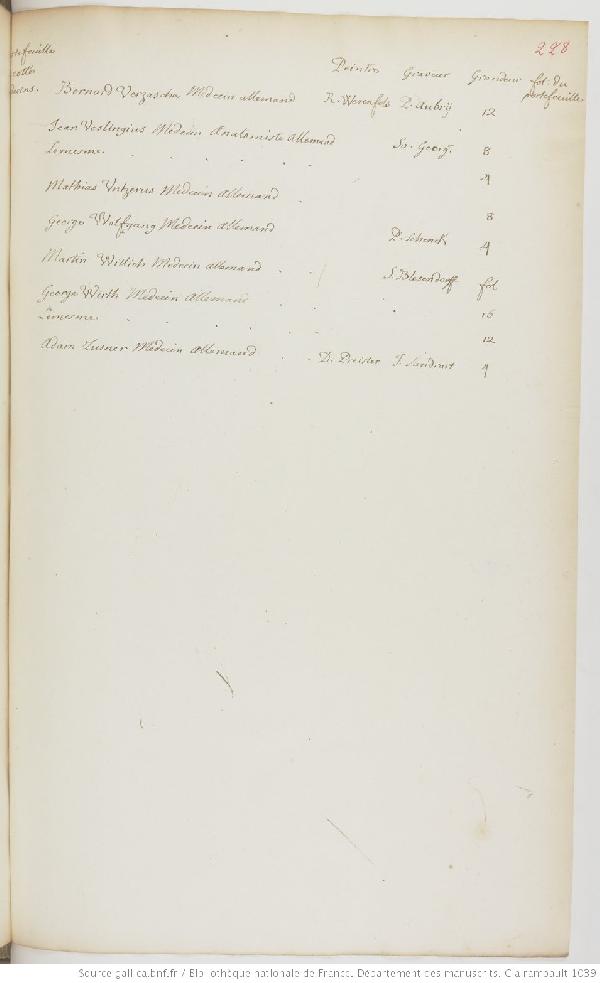 228
Peintre Graveur Grandeur fol. du
portefeuille
Bernard Verzascha Medecin allemand R. Werenfels P. Aubry 12
Jean Veslingius Medecin Anatomiste Allemand Sr. Georg. 8
Lemesme. 4
Mathias Untzerus Medecin Allemand 8
George Wolfgang Medecin Allemand P. Schenck 4
Martin Willich Medecin allemand S. Blesendorff fol
George Wirth Medecin Allemand 16
Lemesme. 12
Adam Zusner Medecin Allemand D. Preisler J. Sandrart 4
Source gallica.bnf.fr / Bibliothèque nationale de France. Département des manuscrits. Clairambault 1039